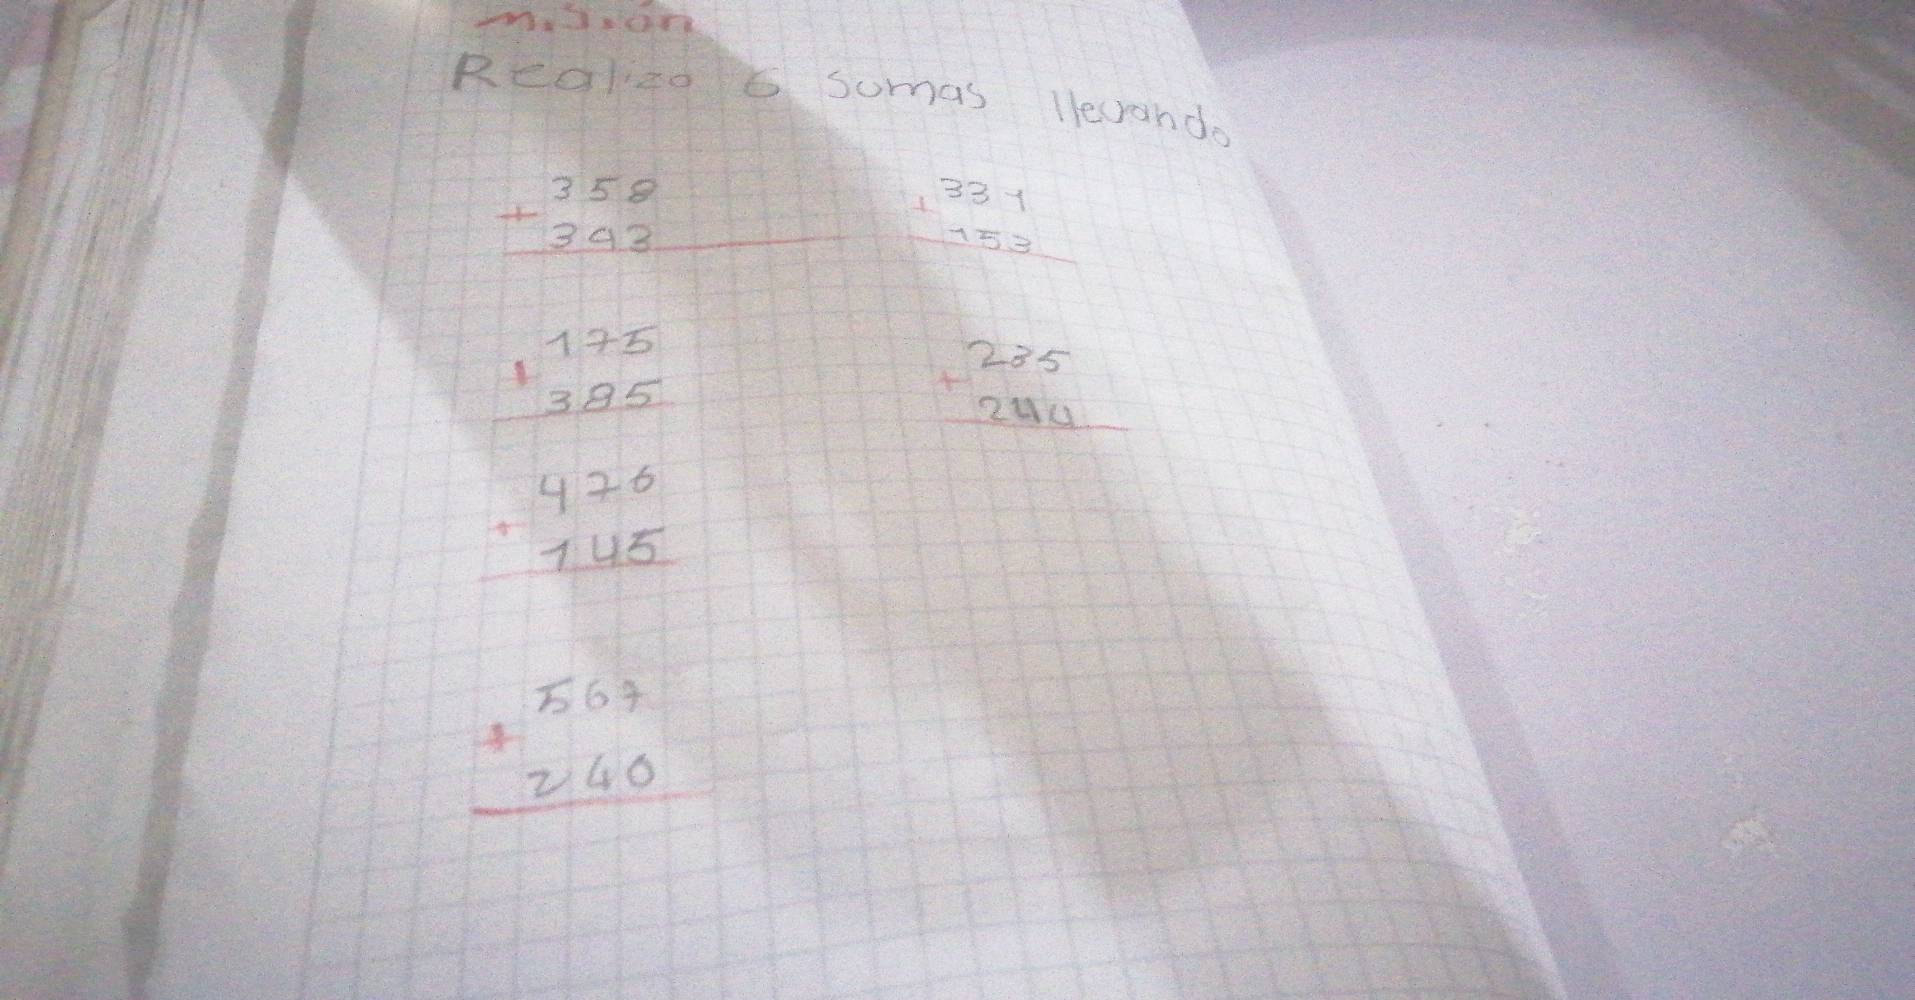 misión
Realizo 6 sumas llevando
358
+
393
331
+
153
175
+
385
235
+
244
476
+
145
567
+
240